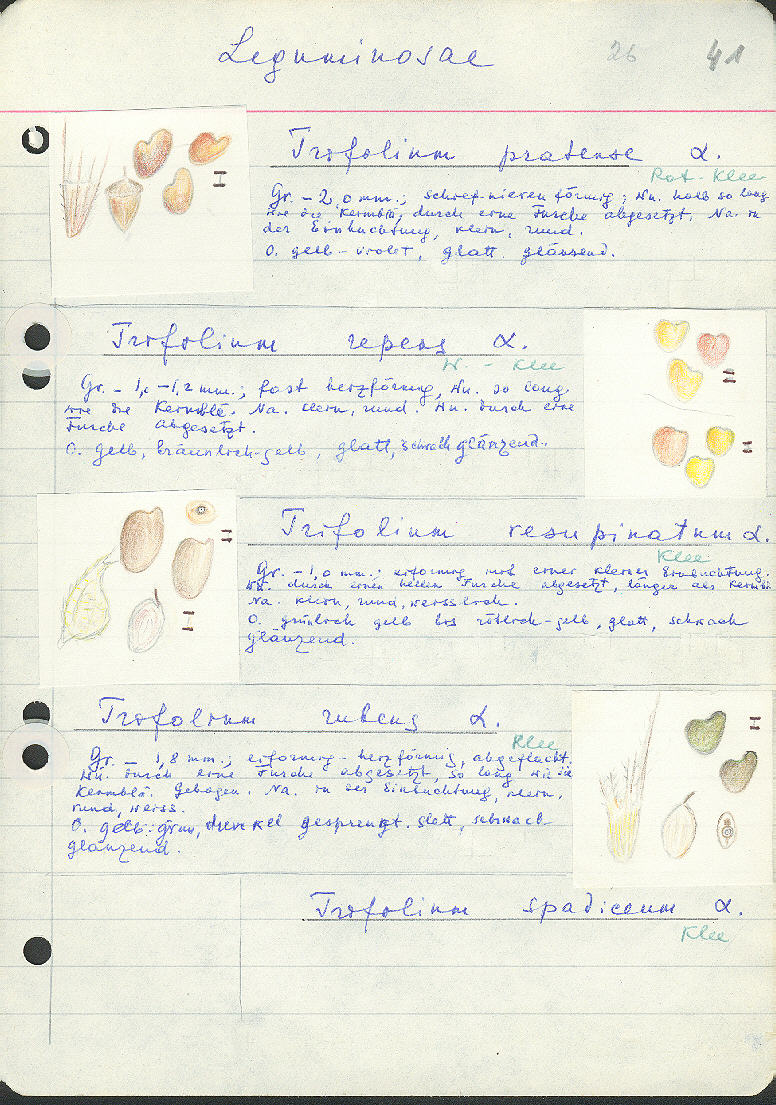 Leguminosae 26 41
Trifolium pratense L.
Rot-Klee
Gr. - 2,0 mm.; schief-nierenförmig; Wu. halb so lang
wie die Keimblä, durch eine Furche abgesetzt. Na. in
der Einbuchtung, klein, rund.
O. gelb-violet, glatt glänzend.
Trifolium repens L.
W. - Klee
Gr. - 1,0 - 1,2 mm.; fast herzförmig, Wu. so lang.
wie die Keimblä. Na. klein, rund. Wu. durch eine
Furche abgesetzt.
O. gelb, bräunlich-gelb, glatt, schwach glänzend.
Trifolium resupinatum L.
Klee
Gr. - 1,0 mm.; eiförmig mit einer kleinen Einbuchtung;
Wu. durch einen hellen Furche abgesetzt, länger als Keimblä
Na. klein, rund, weisslich.
O. grünlich gelb bis rötlich-gelb, glatt, schwach
glänzend.
Trifolium rubens L.
Klee
Gr. - 1,8 mm.; eiförmig-herzförmig, abgeflacht.
Wu. durch eine Furche abgesetzt, so lang wie die
Keimblä. Gebogen. Na. in der Einbuchtung, klein,
rund, weiss.
O. gelb-grün, dunkel gesprengt. Glatt, schwach
glänzend.
Trifolium spadiceum L.
Klee